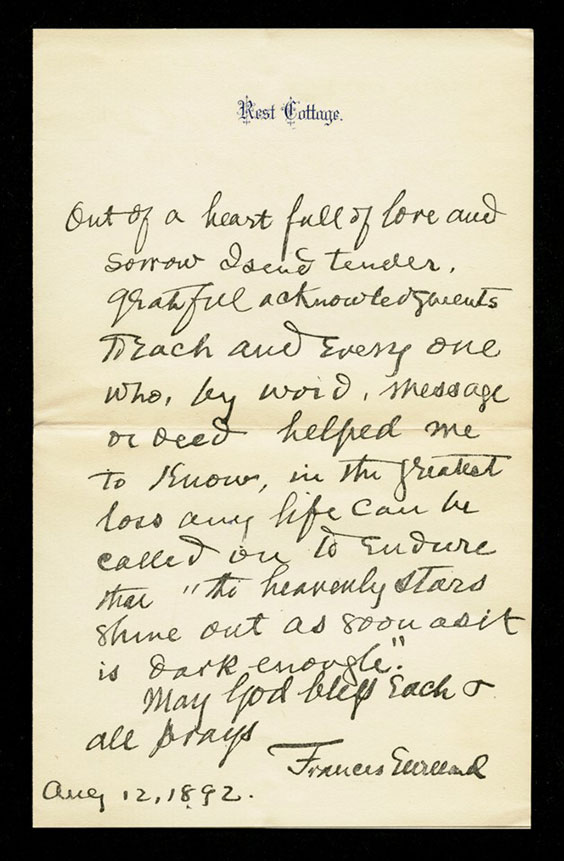 Rest Cottage.
Out of a heart full of love and
sorrow I send tender,
grateful acknowledgments
to Each and Every one
who, by word, message
or deed helped me
to know, in the greatest
loss any life can be
called on to Endure
that "the heavenly stars
shine out as soon as it
is dark enough."
May God bless Each &
all prays
Frances E Willard
Aug 12, 1892.